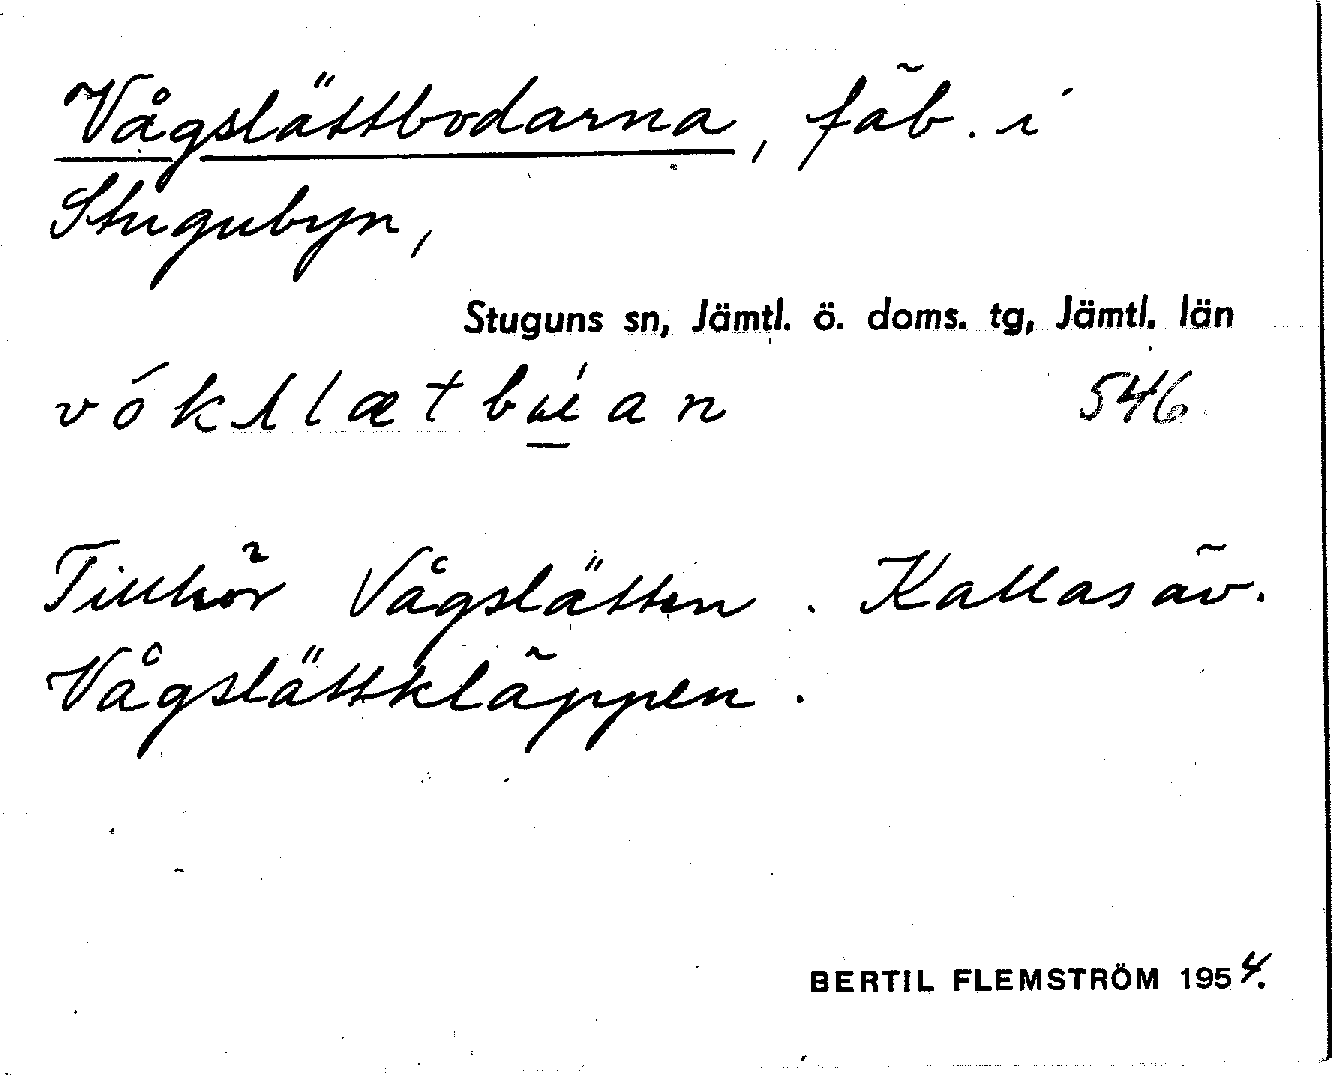 Vågslättbodarna, fäb. i
Stugubyn,
Stuguns sn, Jämtl. ö. doms. tg, Jämtl. län
546
Tillhör Vågslätten. Kallas äv.
Vågslättkläppen.
BERTIL FLEMSTRÖM 1954.